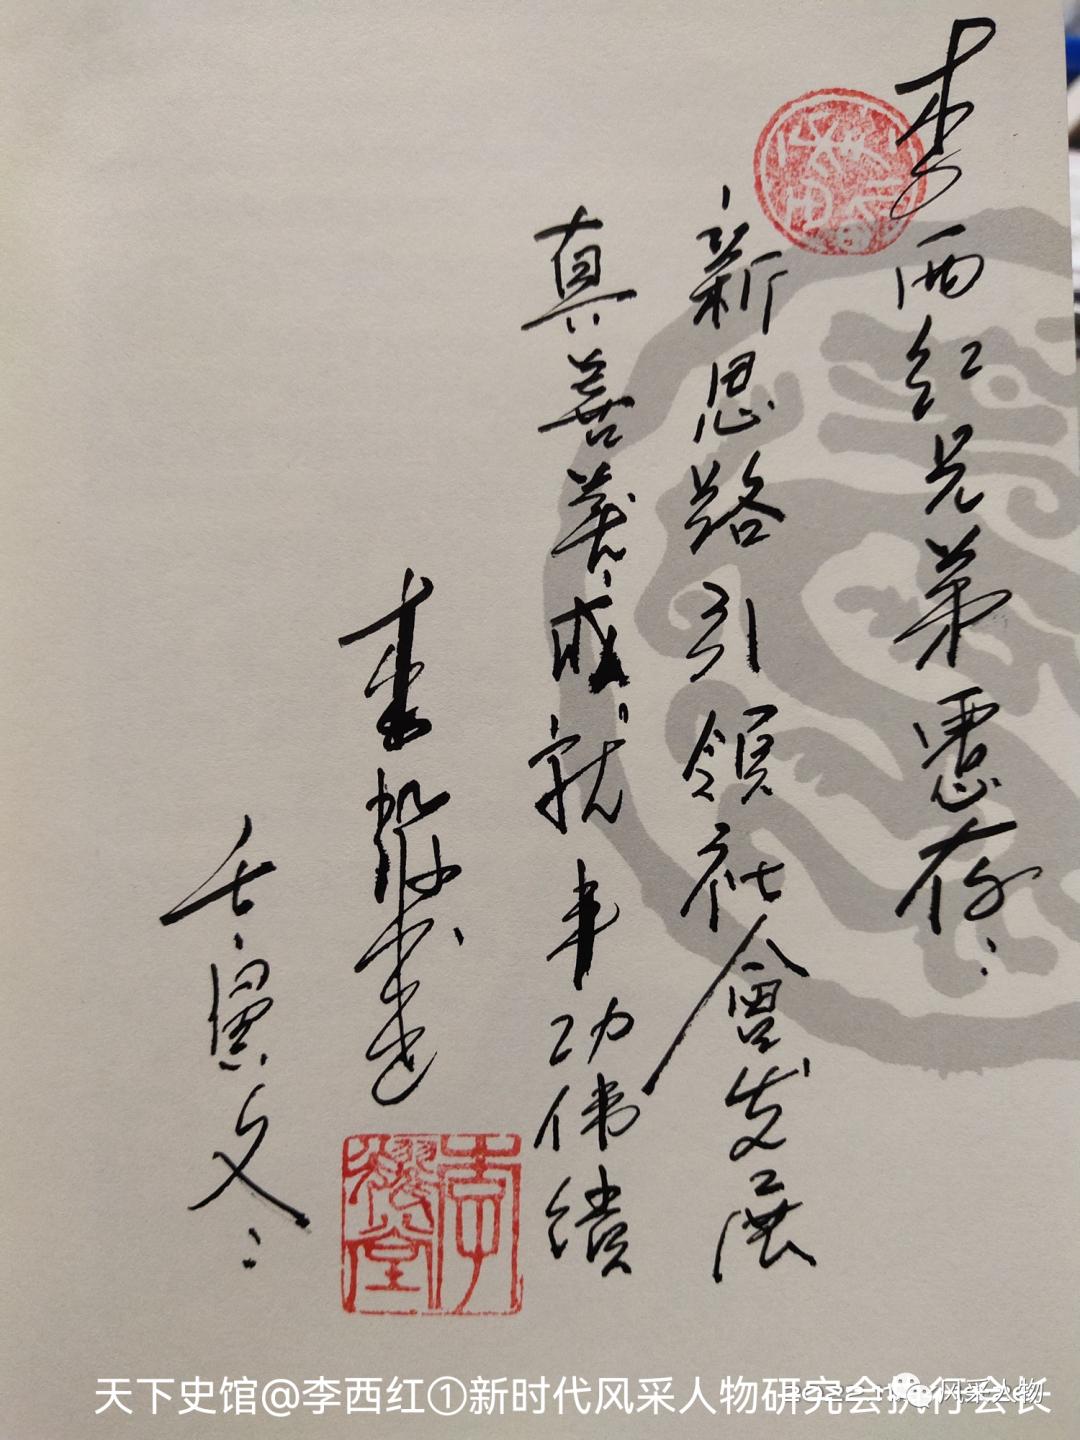 李西红兄弟惠存：
新思路引領社會发展
真善美成就丰功伟绩
李
壬寅冬
李
堂
天下史馆@李西红①新时代风采人物研究会执行会长
风采人物